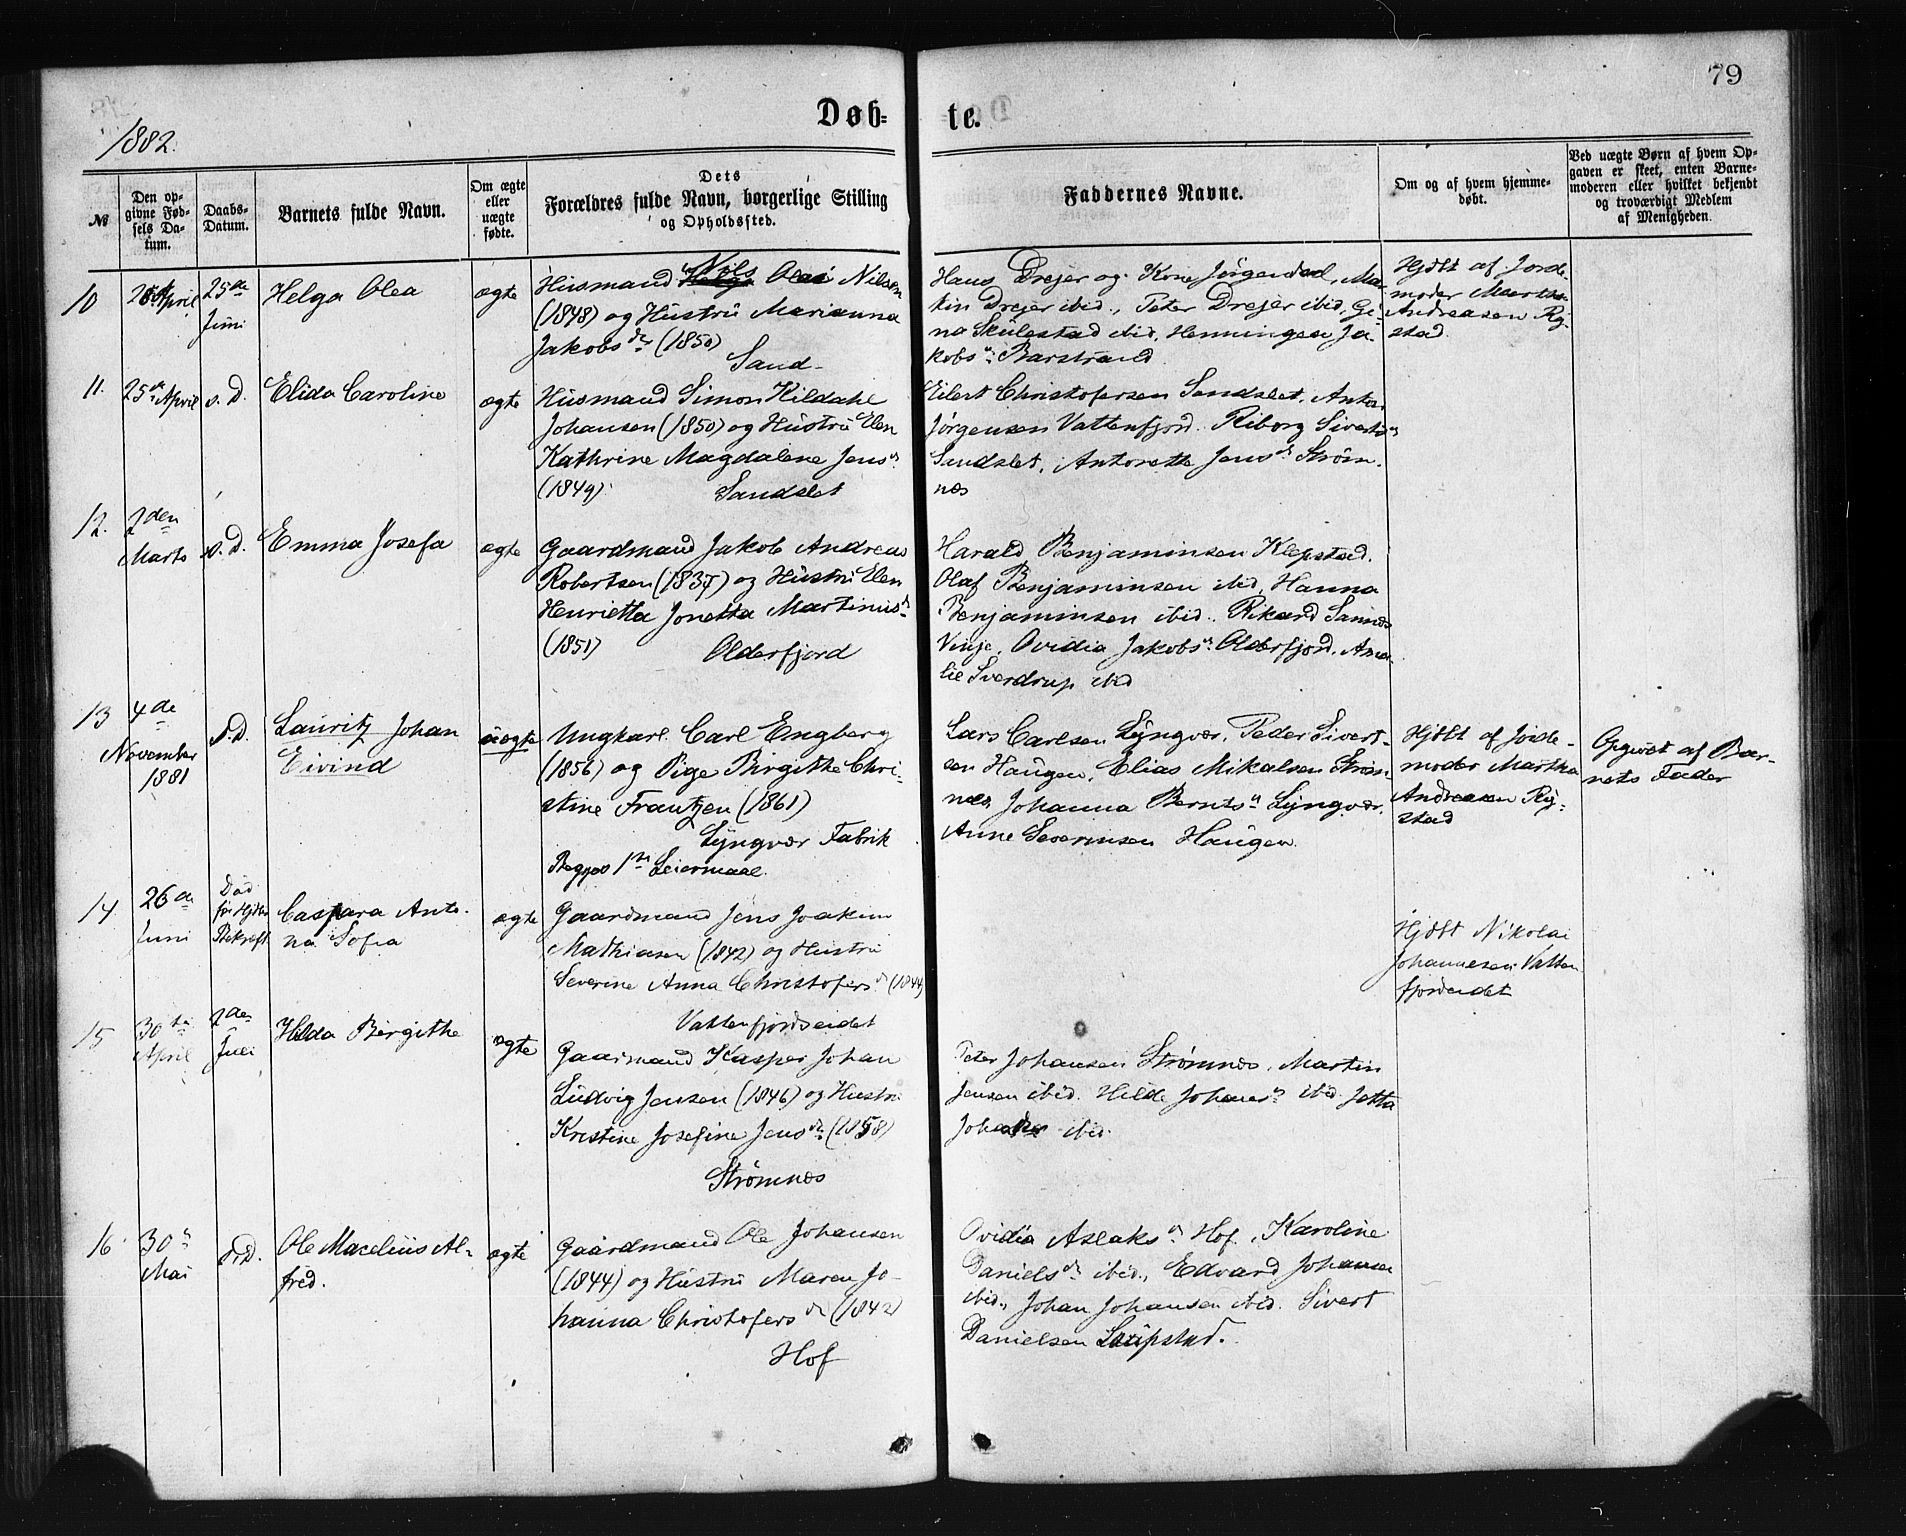 79
Døb=
te.
1882.
№
Den op-
givne Fød-
sels Da-
tum.
Daabs-
Datum.
Barnets fulde Navn.
Om ægte
eller
uægte
fødte.
Dets
Forældres fulde Navn, borgerlige Stilling
og Opholdssted.
Faddernes Navne.
Om og af hvem hjemme-
døbt.
Ved uægte Børn af hvem Op-
gaven er skeet, enten Barne-
moderen eller hvilket bekjendt
og troværdigt Medlem
af Menigheden.
10
April
25de
Juni
Helga Olea
ægte
Husmand Nils Olai Nilsen
(1848) og Hustru Marianna
Jakobsdr (1850)
Sand
Hans Drejer og Kone Jörgendal, Mar-
tin Drejer ibid., Peter Drejer ibid, Gi-
na Skulestad ibid, Henningea Ja-
kobsdr Barstrand
Hjdbt af Jorde-
moder Martha
Andreasen Ry-
stad
11.
25de April
s. D.
Elida Caroline
ægte
Husmand Simon Kildahl
Johansen (1850) og Hustru Elen
Kathrine Magdalene Jensdr
(1849)
Sandslet
Eilert Christofersen Sandslet, Anton
Jörgensen Vattenfjord. Riborg Sivertsdr
Sandslet, Antonette Jensdr Strøm-
nes
12.
2den
Marts
s. D.
Emma Josefa
ægte
Gaardmand Jakob Andreas
Robertsen (1837) og Hustru Elen
Henrietta Jonetta Martinusdr
(1851)
Olderfjord
Harald Benjaminsen Klepstad.
Olaf Benjaminsen ibid, Hanna
Benjaminsen ibid., Rikard Sannes
Vinje, Ovidia Jakobsdr Olderfjord, Ama-
lie Sverdrup ibid
13
4de
November
1881
s. D.
Lauritz Johan
Eivind
uægte
Ungkarl Carl Engberg
(1856) og Pige Birgithe Chri-
stine Frantzen (1861)
Lyngvær Fabrik
Begges 1ste Leiermaal
Lars Carlsen Lyngvær, Peder Sivert-
sen Haugen, Elias Mikalsen Strøm-
nes, Johanna Berntsdr Lyngvær,
Anne Severinsen Haugen.
Hjdbt af Jorde-
moder Martha
Andreasen Ry-
stad
Opgivet af Bar-
nets Fader
14
26de
Juni
Død
før Hjdbs
Bekræft
Caspara Anto-
na Sofia
ægte
Gaardmand Jens Joakim
Mathiasen (1842) og Hustru
Severine Anna Christofersdr (1844)
Vattenfjordseidet
Hjdbt Nikolai
Johannesen Vatten-
fjordeidet
15
30te
April
2den
Juli
Hilda Birgithe
ægte
Gaardmand Kasper Johan
Ludvig Jensen (1846) og Hustru
Kristine Josefine Jensdr (1858)
Strømnes
Peter Johansen Strømnes, Martin
Jensen ibid. Hilde Johansdr ibid. Jetta
ibid.
16
30te
Mai
s. D.
Ole Marelius Al-
fred.
ægte
Gaardmand Ole Johansen
(1844) og Hustru Maren Jo-
hanna Christofersdr (1842)
Hof
Ovidia Aslaksdr Hof, Karoline
Danielsdr ibid., Edvard Johansen
ibid., Johan Johansen ibid. Sivert
Danielsen Laupstad.